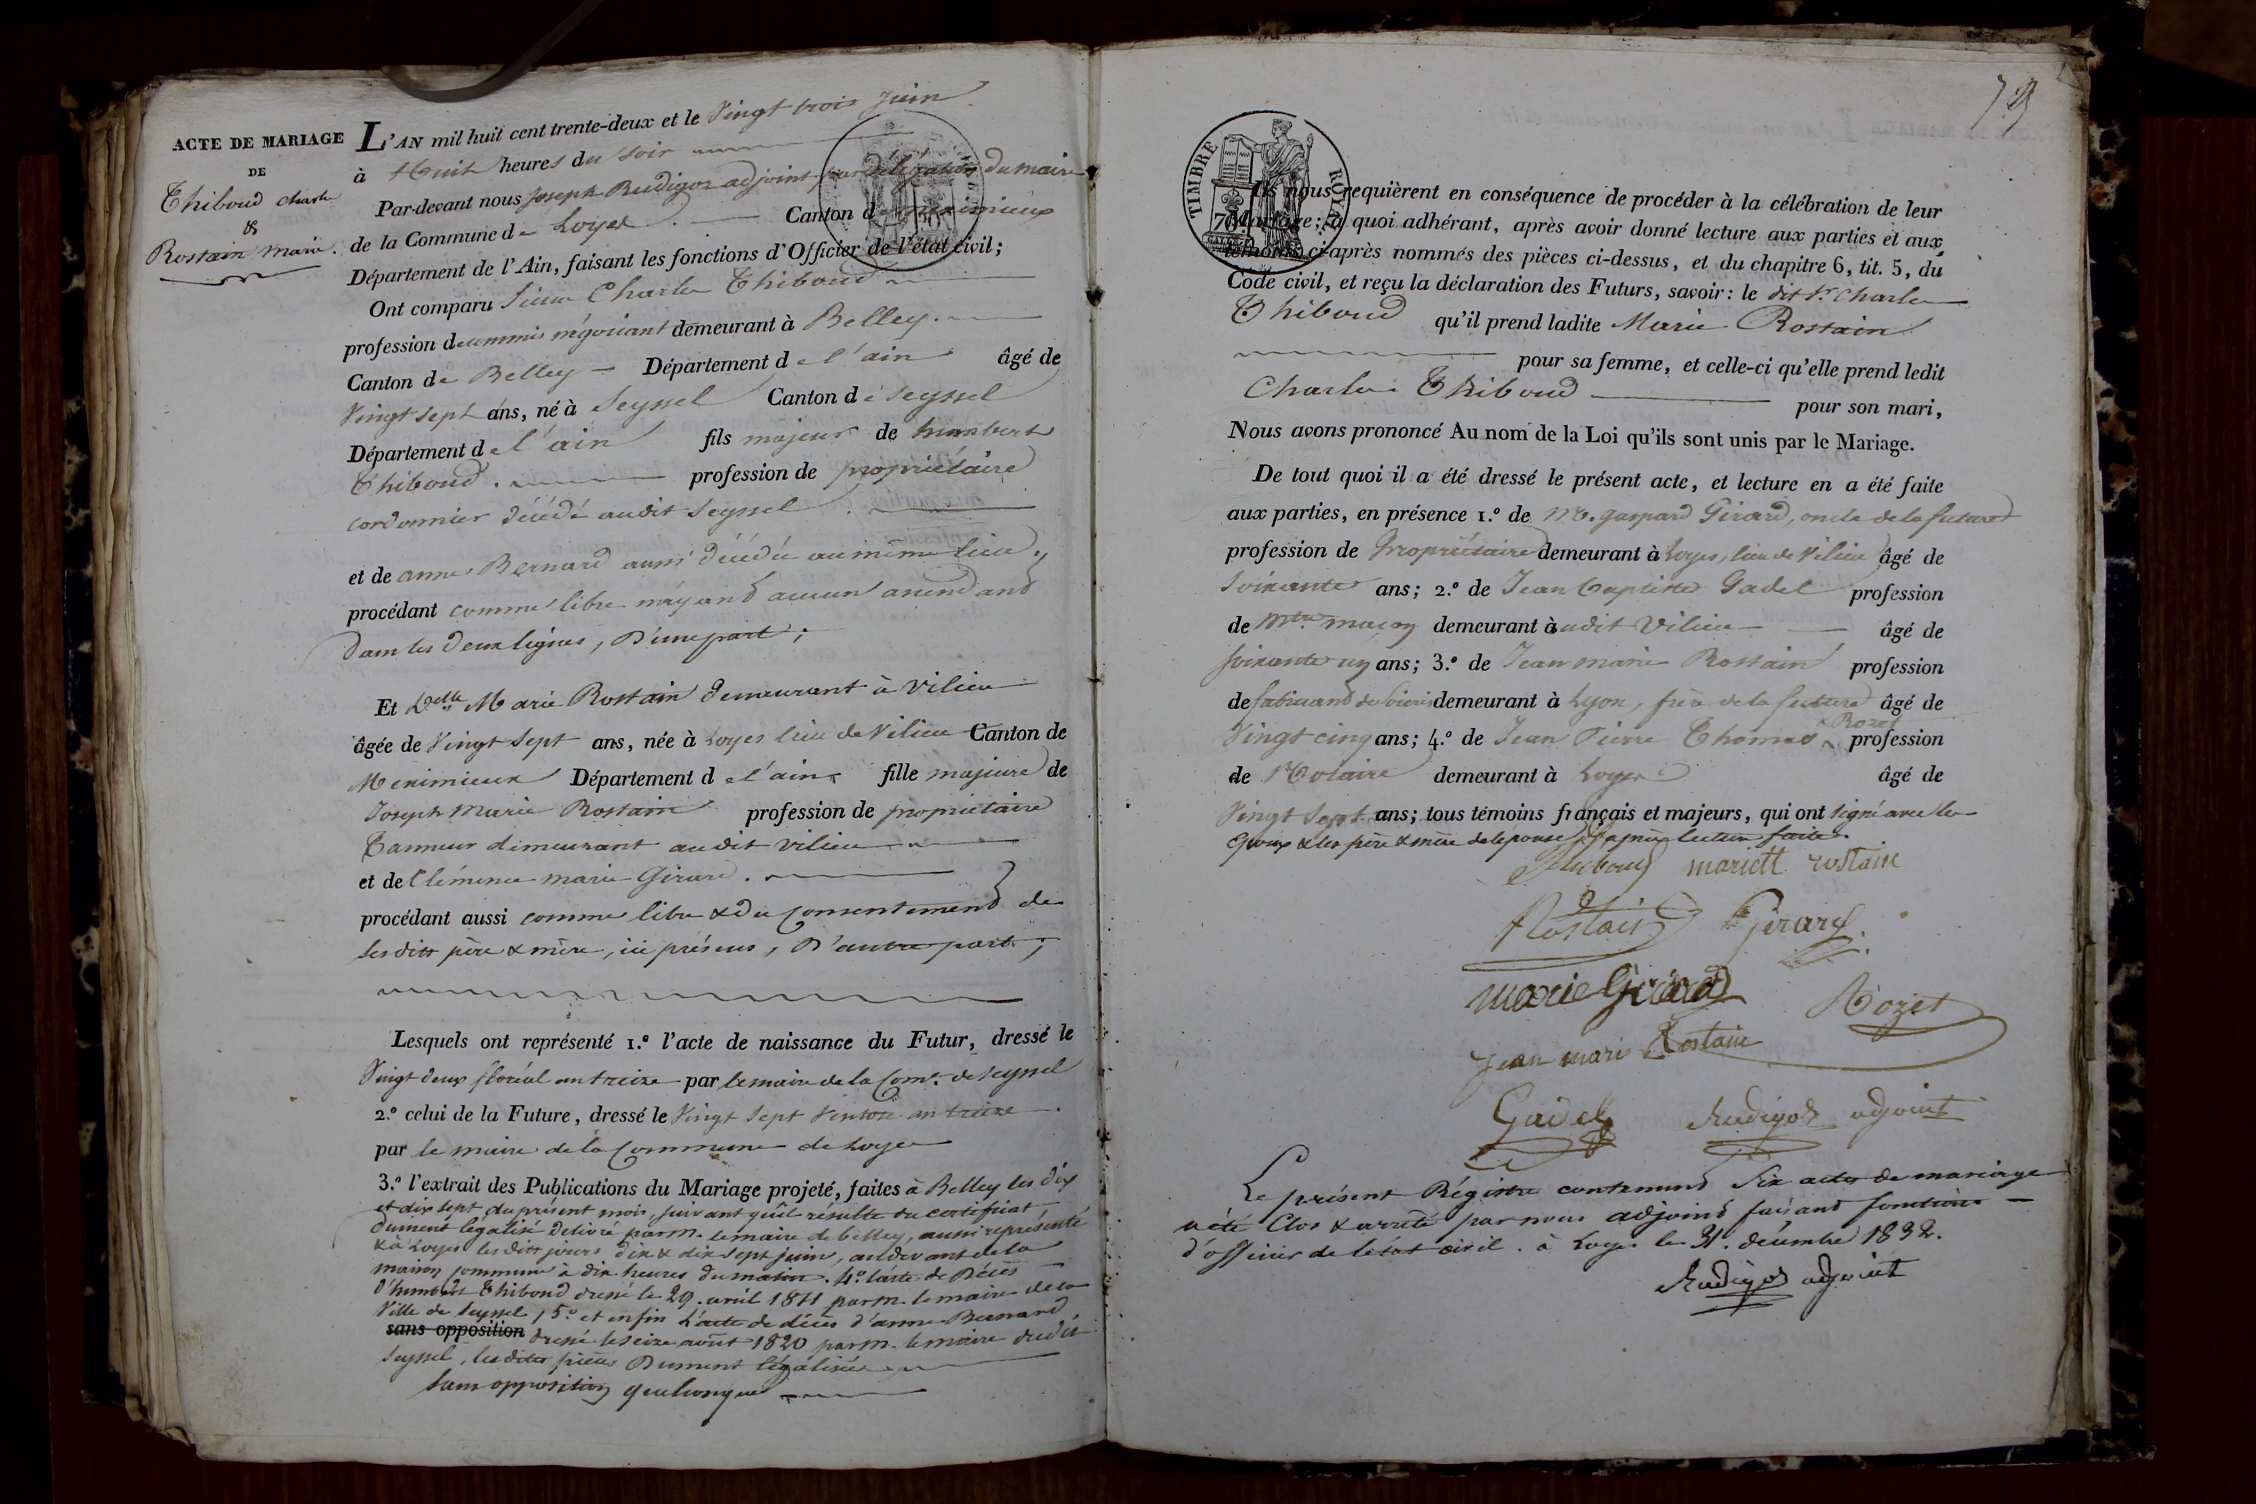 ACTE DE MARIAGE
DE
Thiboud Charles
&
Rostain Marie.
L'AN mil huit cent trente-deux et le Vingt trois Juin
à Huit heures du soir
Par-devant nous Joseph Rudigoz adjoint par délégation du maire
de la Commune de Loyes Canton de Meximieux
Département de l'Ain, faisant les fonctions d'Officier de l'état civil;
Ont comparu Sieur Charles Thiboud
profession de commis négociant demeurant à Belley.
Canton de Belley Département de l'ain âgé de
Vingt sept ans, né à Seyssel Canton de Seyssel
Département de l'ain fils majeur de humbert
Thiboud. profession de propriétaire
cordonnier décédé audit Seyssel
et de anne Bernard aussi décédée au même lieu.
procédant comme libre n'ayant aucun ascendant
dans les deux lignes, D'une part;
Et Delle Marie Rostain demeurant à Vilieu
âgée de Vingt Sept ans, née à Loyes lieu de Vilieu Canton de
Meximieux Département de l'ain fille majeure de
Joseph Marie Rostain profession de propriétaire
Tanneur demeurant audit Vilieu
et de Clémence marie Girard.
procédant aussi comme libre & du Consentement de
ses dits père & mère, ici présens, D'autre part;
Lesquels ont représenté 1.º l'acte de naissance du Futur, dressé le
Vingt deux floréal an treize par le maire de la Come. de Seyssel
2.º celui de la Future, dressé le Vingt Sept Ventose an treize.
par le maire de la Commune de Loyes
3.º l'extrait des Publications du Mariage projeté, faites à Belley les dix
et dix sept du présent mois, suivant qu'il résulte du certificat
dument légalisé Délivré par m. le maire de belley, aussi représenté
& à Loyes les dits jours dix & dix sept juin, au devant de la
maison commune à dix heures du matin. 4.º l'acte de Décès
d'humbert Thiboud dressé le 29. avril 1811 par m. le maire de la
Ville de Seyssel, 5.º et enfin l'acte de décès d'anne Bernard
sans opposition dressé le seize août 1820 par m. le maire dudit
Seyssel, les dites pièces Dument légalisées
Sans opposition quelconque
TIMBRE ROYAL
70
Ils nous requièrent en conséquence de procéder à la célébration de leur
Mariage; à quoi adhérant, après avoir donné lecture aux parties et aux
témoins ci-après nommés des pièces ci-dessus, et du chapitre 6, tit. 5, du
Code civil, et reçu la déclaration des Futurs, savoir: le dit Sr. Charles
Thiboud qu'il prend ladite Marie Rostain
pour sa femme, et celle-ci qu'elle prend ledit
Charles Thiboud pour son mari,
Nous avons prononcé Au nom de la Loi qu'ils sont unis par le Mariage.
De tout quoi il a été dressé le présent acte, et lecture en a été faite
aux parties, en présence 1.º de M. Gaspard Girard, oncle de la future
profession de Propriétaire demeurant à Loyes, lieu de Vilieu âgé de
Soixante ans; 2.º de Jean baptiste Gadel profession
de Mtre maçon demeurant audit Vilieu âgé de
soixante un ans; 3.º de Jean marie Rostain profession
de fabricant de soieries demeurant à Lyon, frère de la future âgé de
Rozet
Vingt cinq ans; 4.º de Jean Pierre Thomas profession
de Notaire demeurant à Loyes âgé de
Vingt Sept ans; tous témoins français et majeurs, qui ont signé avec les
époux & les père & mère de l'épouse, après lecture faite.
Thiboud mariett rostain
Rostain Girard
marie Girard Rozet
Jean marie Rostain
Gadel Rudigoz adjoint
Le présent Régistre contenant Six actes de mariage
a été Clos & arrêté par nous adjoint faisant fonctions
d'officier de l'état civil. à Loyes le 31. décembre 1832.
Rudigoz adjoint